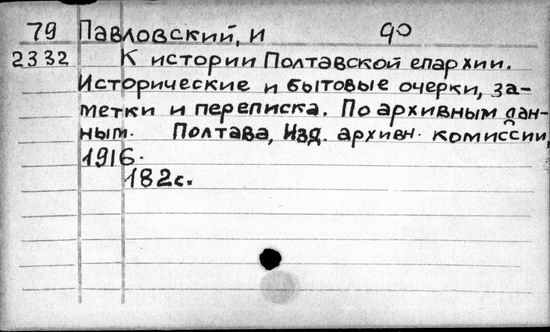 79 Павловский, и до
2332 К истории Полтавской епархии.
Исторические и бытовые очерки, за-
метки и переписка. По архивным дан-
ным. Полтава, Изд. архивн. комиссии,
1916.
182с.